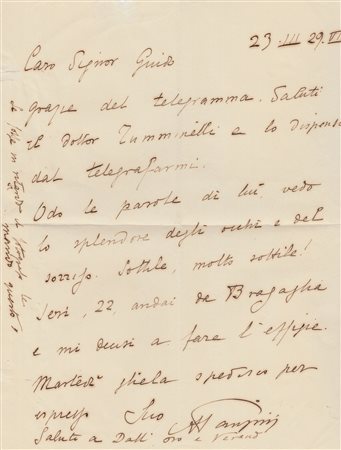 23.III.29.VII
Caro Signor Guido
grazie del telegramma. Saluti
il dottor Tumminelli e lo dispensi
dal telegrafarmi.
Odo le parole di lui, vedo
lo splendore degli occhi e del
sorriso. Sottile, molto sottile!
Ieri, 22, andai da Bragaglia
e mi decisi a fare l'effigie.
Martedì gliela spedisco per
espresso Suo
Saluti a Dall'Oro e